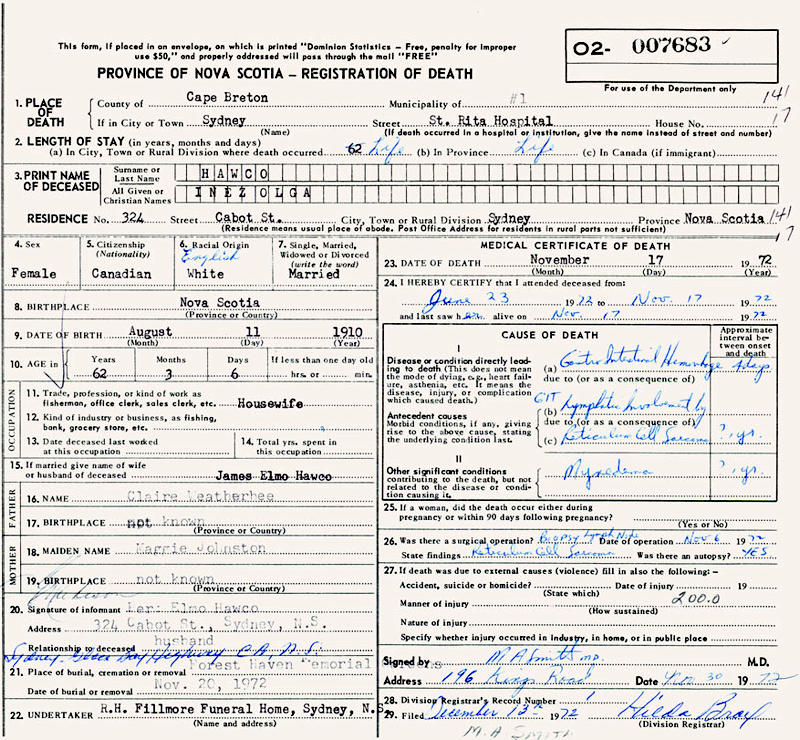 This form, if placed in an envelope, on which is printed "Dominion Statistics – Free, penalty for improper
use $50," and properly addressed will pass through the mail "FREE"
PROVINCE OF NOVA SCOTIA – REGISTRATION OF DEATH
O2- 007683
For use of the Department only
1. PLACE OF DEATH
County of Cape Breton Municipality of #1 141
If in City or Town Sydney Street St. Rita Hospital House No. 17
(Name) (If death occurred in a hospital or institution, give the name instead of street and number)
2. LENGTH OF STAY (in years, months and days)
(a) In City, Town or Rural Division where death occurred 62 Life (b) In Province Life (c) In Canada (if immigrant)
3. PRINT NAME OF DECEASED
Surname or Last Name HAWCO
All Given or Christian Names INEZ OLGA
RESIDENCE No. 324 Street Cabot St. City, Town or Rural Division Sydney Province Nova Scotia 141
(Residence means usual place of abode. Post Office Address for residents in rural parts not sufficient) 17
4. Sex
Female
5. Citizenship
(Nationality)
Canadian
6. Racial Origin
English
White
7. Single, Married,
Widowed or Divorced
(write the word)
Married
8. BIRTHPLACE Nova Scotia
(Province or Country)
9. DATE OF BIRTH August 11 1910
(Month) (Day) (Year)
10. AGE in Years Months Days If less than one day old
62 3 6 hrs. or min.
OCCUPATION
11. Trade, profession, or kind of work as
fisherman, office clerk, sales clerk, etc. Housewife
12. Kind of industry or business, as fishing,
bank, grocery store, etc.
13. Date deceased last worked
at this occupation
14. Total yrs. spent in
this occupation
15. If married give name of wife
or husband of deceased James Elmo Hawco
FATHER
16. NAME Claire Weatherbee
17. BIRTHPLACE not known
(Province or Country)
MOTHER
18. MAIDEN NAME Maggie Johnston
19. BIRTHPLACE not known
(Province or Country)
20. Signature of informant Per: Elmo Hawco
Address 324 Cabot St., Sydney, N.S.
Relationship to deceased husband
Sydney. Glace Bay Highway C.B. N.S.
21. Place of burial, cremation or removal Forest Haven Memorial
Date of burial or removal Nov. 20, 1972
22. UNDERTAKER R.H. Fillmore Funeral Home, Sydney, N.S.
(Name and address)
MEDICAL CERTIFICATE OF DEATH
23. DATE OF DEATH November 17 1972
(Month) (Day) (Year)
24. I HEREBY CERTIFY that I attended deceased from:
June 23 1972 to Nov. 17 1972
and last saw her alive on Nov. 17 1972
CAUSE OF DEATH
Approximate interval between onset and death
I
Disease or condition directly leading to death (This does not mean the mode of dying, e.g., heart failure, asthenia, etc. It means the disease, injury, or complication which caused death.)
(a) Gastro Intestinal Hemorrhage 4 days
due to (or as a consequence of)
Antecedent causes
Morbid conditions, if any, giving rise to the above cause, stating the underlying condition last.
GIT
(b) Lymphatic Involvement by
due to (or as a consequence of)
(c) Reticulum Cell Sarcoma ? yr.
II
Other significant conditions contributing to the death, but not related to the disease or condition causing it.
Myxedema ? yr.
25. If a woman, did the death occur either during
pregnancy or within 90 days following pregnancy?
(Yes or No)
26. Was there a surgical operation? Biopsy Lymph Node Date of operation Nov 6 1972
State findings Reticulum Cell Sarcoma Was there an autopsy? YES
27. If death was due to external causes (violence) fill in also the following:–
Accident, suicide or homicide? Date of injury 19
(State which)
Manner of injury 200.0
(How sustained)
Nature of injury
Specify whether injury occurred in industry, in home, or in public place
Signed by M A Smith MD. M.D.
Address 196 Kings Road Date Nov 30 1972
28. Division Registrar's Record Number
29. Filed December 13th 1972 Hilda Bray
(Division Registrar)
M. A SMITH